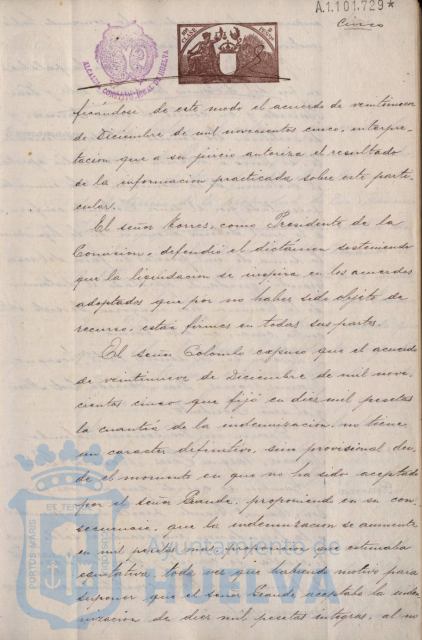 A.1.101.729*
Cinco
ALCALDIA CONSTITUCIONAL DE HUELVA
ficándose de este modo el acuerdo de veintinueve
de Diciembre de mil novecientos cinco, interpre-
tacion que a su juicio autoriza el resultado
de la informacion practicada sobre este parti-
cular.
El señor Torres, como Presidente de la
Comision, defendió el dictámen sosteniendo
que la liquidacion se inspira en los acuerdos
adoptados que por no haber sido objeto de
recurso, están firmes en todas sus partes.
El señor Colombo expuso que el acuerdo
de veintinueve de Diciembre de mil nove-
cientos cinco que fijó en diez mil pesetas
la cuantía de la indemnizacion, no tiene
un caracter definitivo, sino provisional des-
de el momento en que no ha sido aceptado
por el señor Grande, proponiendo en su con-
secuencia, que la indemnizacion se aumente
en mil pesetas mas, proposicion que estimaba
equitativa, toda vez que habiendo motivo para
suponer que el señor Grande aceptaba la indem-
nizacion de diez mil pesetas integras, al no
PORTUS MARIS
ET TERRE
Ayuntamiento de
HUELVA